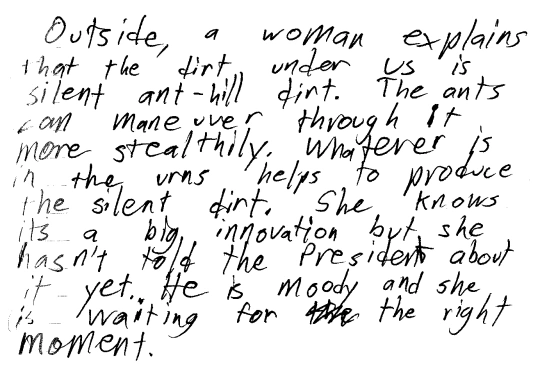 Outside, a woman explains
that the dirt under us is
silent ant-hill dirt. The ants
can maneuver through it
more stealthily. Whatever is
in the urns helps to produce
the silent dirt. She knows
its a big innovation but she
hasn't told the President about
it yet. He is moody and she
is waiting for the the right
moment.